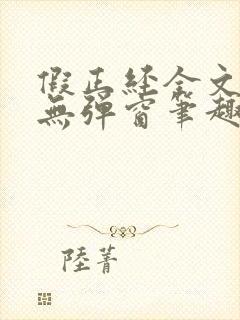 假正經全文
無彈窗筆趣
陸菁